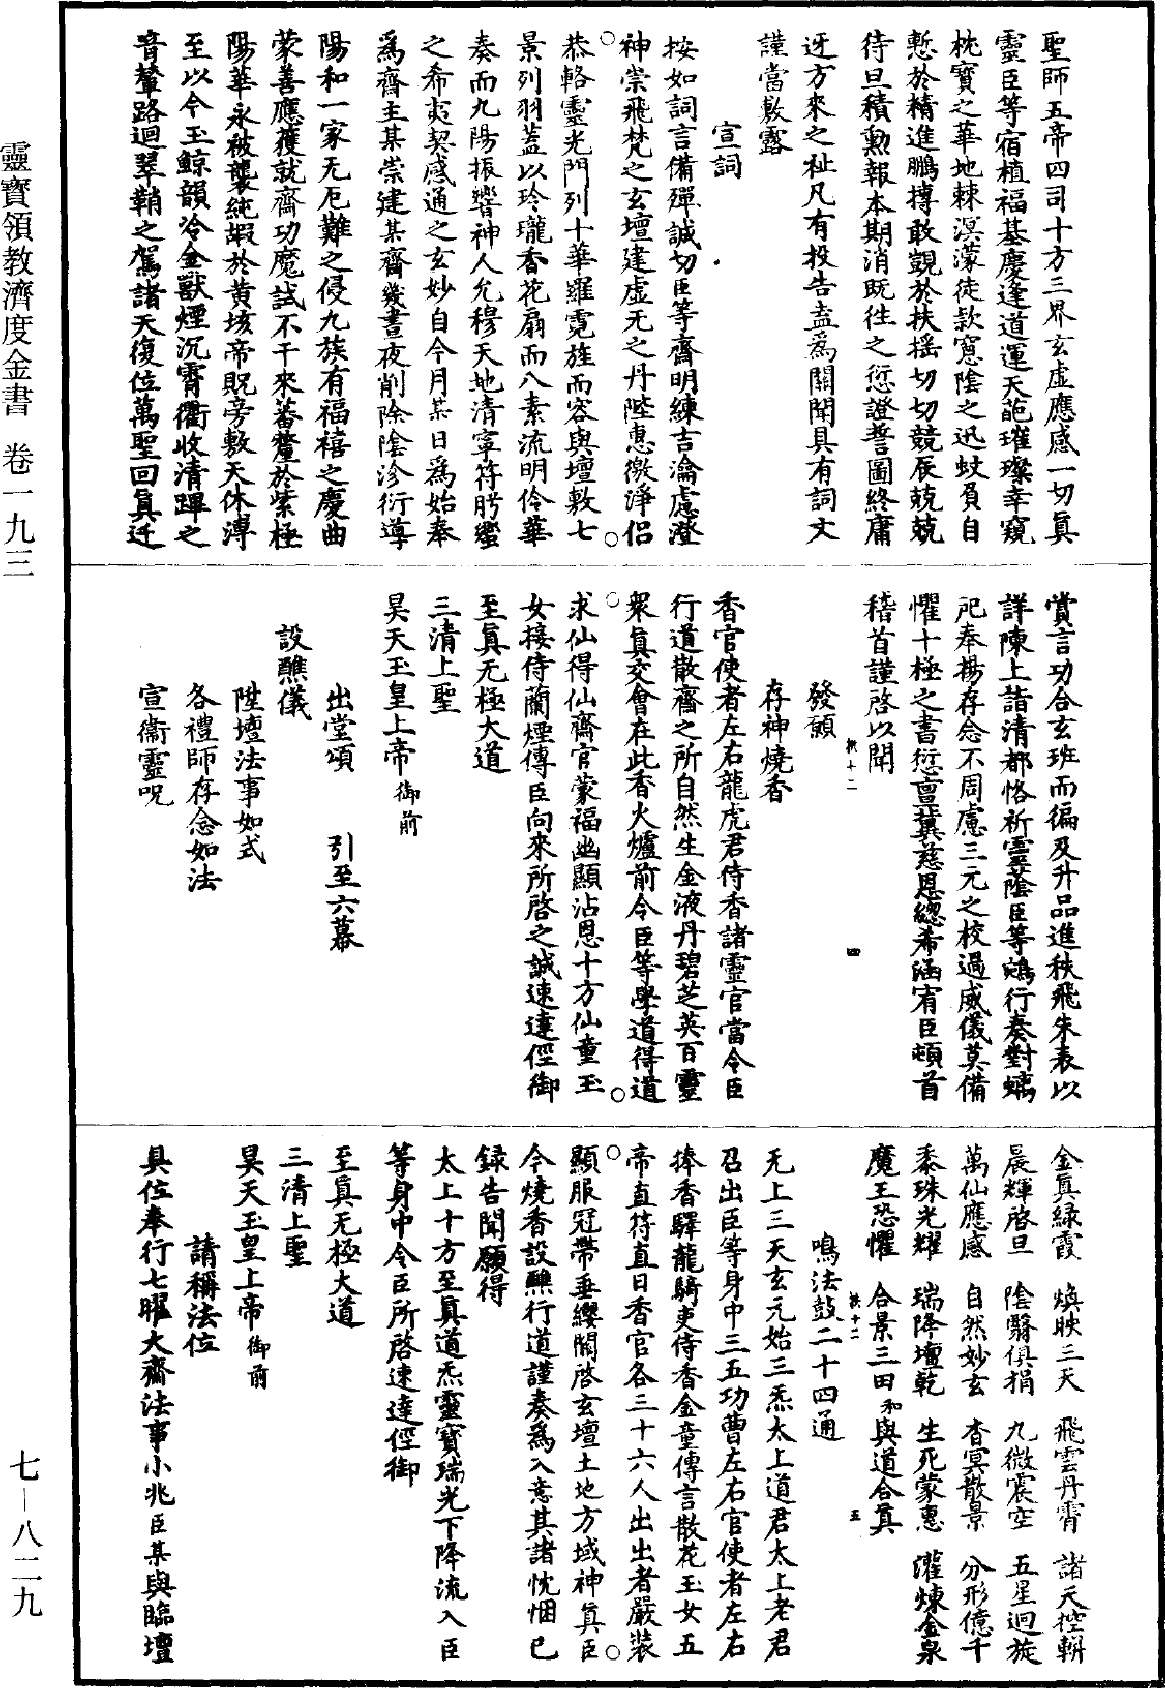 聖師五帝四司十方三界玄虛應感一切眞
靈臣等宿植福基慶逢道運天葩璀璨幸窺
枕寶之華地棘溟濛徒款窻陰之迅蚊負自
慙於精進鵬摶敢覬於扶搖切切競辰兢兢
待旦積勲報本期消旣徃之愆證誓圖終庸
迓方來之祉凡有投告盍爲關聞具有詞文
謹當敷露
宣詞
按如詞言備殫誠切臣等齋明練吉瀹慮澄
神崇飛梵之玄壇建虛无之丹陛悳徼淨侣
恭輅靈光門列十華羅霓旌而容與壇敷七
景列羽蓋以玲瓏香花扇而八素流明伶華
奏而九陽振響神人允穆天地清寧符肹蠁
之希夷契感通之玄妙自今月某日爲始奉
爲齋主某崇建某齋幾晝夜削除陰沴衍導
陽和一家无厄難之侵九族有福禧之慶曲
蒙善應獲就齋功魔試不干來蕃釐於紫極
陽華永被襲純嘏於黄垓帝貺旁敷天休溥
至以今玉鯨韻冷金獸煙沉霄衢收清蹕之
音輦路迴翠鞘之駕諸天復位萬聖回眞迁
賞言功合玄班而徧及升品進秩飛朱表以
詳陳上詣清都恪祈靈蔭臣等鴆行奏對螭
祀奉揚存念不周慮三元之校過威儀莫備
懼十極之書愆亶冀慈恩緫希涵宥臣頓首
稽首謹啓以聞
發願
存神燒香
香官使者左右龍虎君侍香諸靈官當令臣
行道散齋之所自然生金液丹碧芝英百靈
衆眞交會在此香火爐前令臣等學道得道
求仙得仙齋官蒙福幽顯沾恩十方仙童玉
女接侍蘭煙傳臣向來所啓之誠速達俓御
至眞无極大道
三清上聖
昊天玉皇上帝御前
出堂頌　引至六幕
設醮儀
陞壇法事如式
各禮師存念如法
宣衞靈呪
金眞緑霞　煥映三天　飛雲丹霄　諸天控輧
晨輝啓旦　陰翳俱捐　九微震空　五星迴旋
萬仙應感　自然妙玄　杳冥散景　分形億千
黍珠光耀　瑞降壇乾　生死蒙惠　濯煉金泉
魔王恐懼　合景三田　和與道合眞
鳴法鼓二十四通
无上三天玄元始三炁太上道君太上老君
召出臣等身中三五功曹左右官使者左右
捧香驛龍騎吏侍香金童傳言散花玉女五
帝直符直日香官各三十六人出出者嚴裝
顯服冠帶垂纓關啓玄壇土地方域神眞臣
今燒香設醮行道謹奏爲入意其諸忱悃已
録告聞願得
太上十方至眞道炁靈寶瑞光下降流入臣
等身中令臣所啓速達俓御
至眞无極大道
三清上聖
昊天玉皇上帝御前
請稱法位
具位奉行七曜大齋法事小兆臣某與臨壇
靈寶領教濟度金書　卷一九三
七—八二九
扶十二
四
扶十二
五